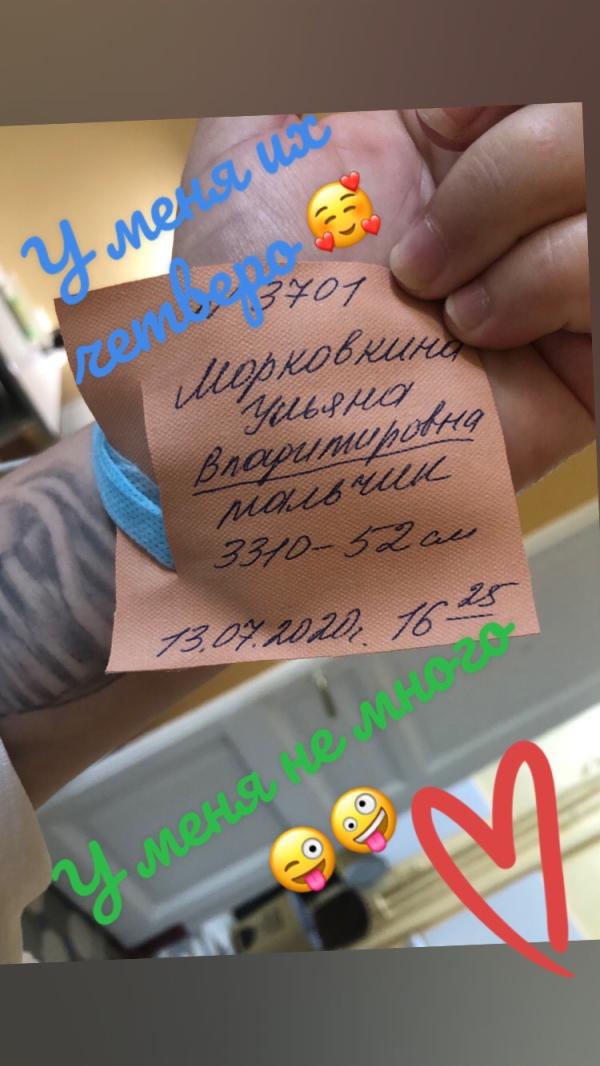 У меня их
четверо
3701
Морковкина
Ульяна
Владимировна
мальчик
3310-52 см
13.07.2020г. 16 25
У меня не много